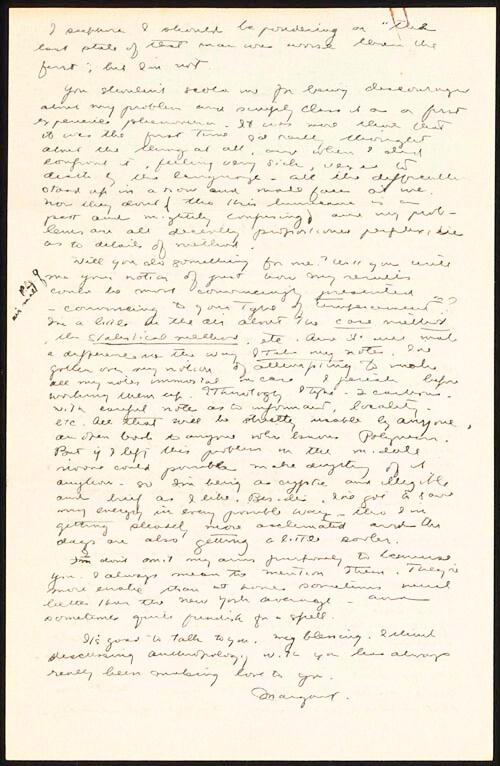 I suppose I should be pondering on "the
last state of that man was worse than the
first", but I'm not.
You shouldn't scold me for being discouraged
about my problem and simply class it as a first
experience phenomenon. It was more than that
it was the first time I'd really thought
about the thing at all, and when I did
confront it, feeling very sick,
death by the language - all the difficulties
stood up in a row and made faces at me.
Now they don't (tho this hurricane is an
past and mightily confusing) and my prob-
lems are all decently proportioned perplexities
as to details of method.
Will you do something for me? Will you write
me your notion of just how my results
could be most convincingly presented
- convincing to your type of temperament?
I'm a little in the air about the case method,
the statistical method, etc. And it will make
a difference in the way I take my notes. I've
gotten over my notion of attempting to make
all my notes immortal in case I perish before
working them up. Ethnology I type - 2 carbons -
with careful note as to informant, locality -
etc. All that will be strictly usable by anyone,
an open book to anyone who knows Polynesia.
But if I left this problem in the middle
no one could possibly make anything of it
anyhow - so I'm being as cryptic and illegible
and brief as I like. Besides, I've got to save
my energy in every possible way - tho I'm
getting steadily more acclimated and the
days are also getting a little cooler.
I don't omit my arms purposely to
you. I always mean to mention them. They're
more erratic than at home sometimes much
better than the New York average - and
sometimes quite fiendish for a spell.
It's good to talk to you, my blessing. I think
discussing anthropology with you has always
really been making love to you.
Margaret.
air mail